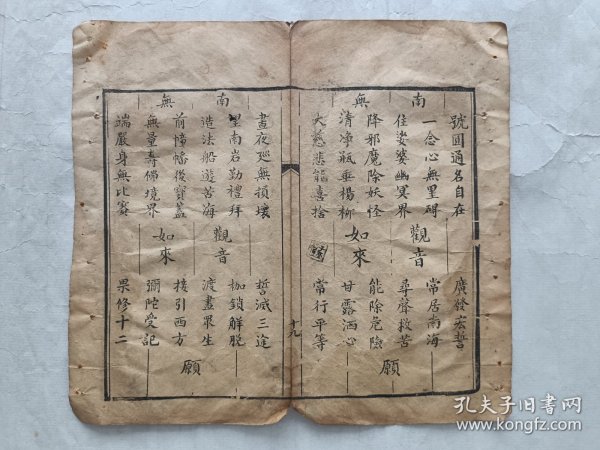 南無
號圓通名自在 廣發宏誓
一念心無罣碍 常居南海
住娑婆幽冥界 尋聲救苦
降邪魔除妖怪 能除危險
清凈瓶垂楊柳 甘露洒心
大慈悲能喜捨 常行平等
觀音
如來
願
十九
南無
晝夜廵無損壞 誓滅三途
望南岩勤禮拜 枷鎖解脫
造法船遊苦海 渡盡眾生
前幢幡後寶蓋 接引西方
無量壽佛境界 彌陀受記
端嚴身無比賽 果修十二
觀音
如來
願
孔夫子旧书网
www.kongfz.com